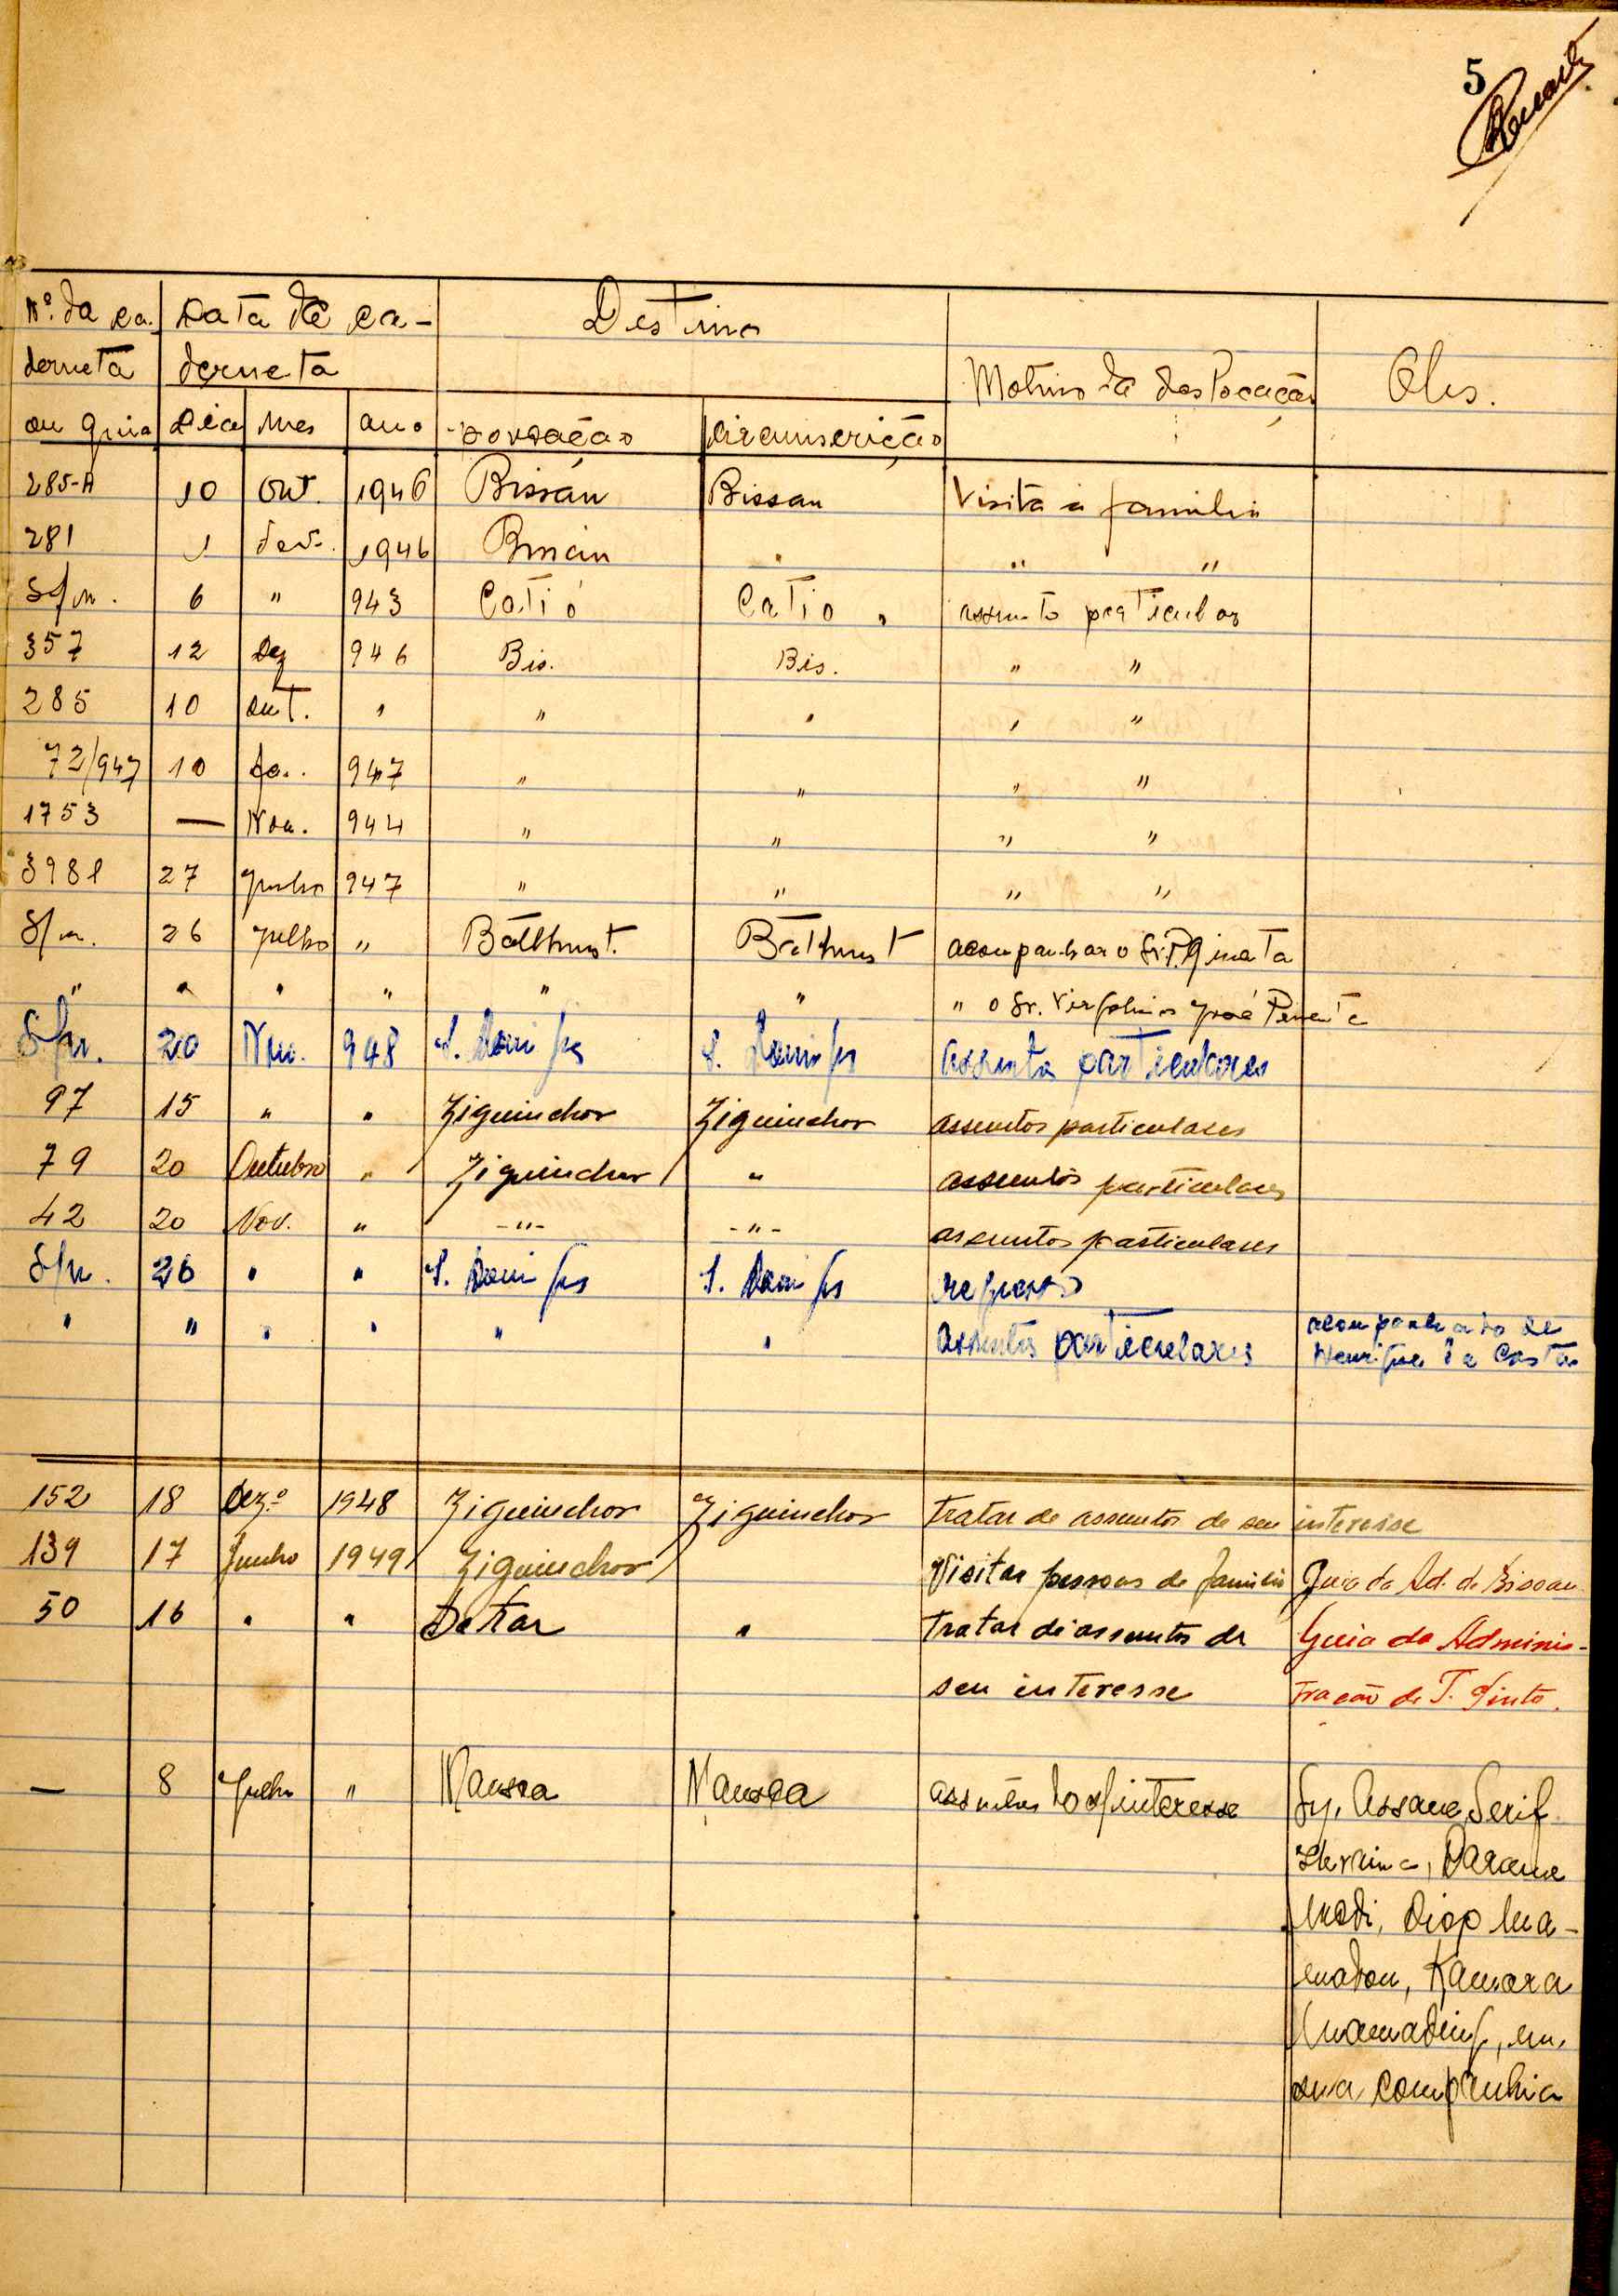 5
Nº. da ca- Data da ca- Destino
derneta derneta Motivo da deslocação Obs.
ou guia Dia Mes ano povoação circunscrição
285-A 10 Out. 1946 Bissau Bissau Visita á familia
281 1 1946 Bissau " " "
S/n. 6 " 943 Catió Catió " assunto particular
357 12 Dez 946 Bis. Bis. " "
285 10 Out. " " " " "
72/947 10 947 " " " "
1753 — Nov. 944 " " " "
3981 27 Junho 947 " " " "
S/n. 26 Julho " Bathurst. Bathurst acompanhar o Sr.
" " " " " " " o Sr. José
S/n. 20 Nov. 948 S. Domingos S. Domingos Assuntos particulares
97 15 " " Ziguinchor Ziguinchor assuntos particulares
79 20 Outubro " Ziguinchor " assuntos particulares
42 20 Nov. " -"- -"- assuntos particulares
S/n. 26 " " S. Domingos S. Domingos regresso
" " " " " " Assuntos particulares acompanhado de
Henrique da Costa
152 18 Dezº 1948 Ziguinchor Ziguinchor Tratar de assuntos de seu interesse
139 17 Junho 1949 Ziguinchor Visitar pessoas de familia Guia da Ad. de Bissau
50 16 " " Dakar " Tratar de assuntos de Guia da Adminis-
seu interesse tração de T. Pinto.
— 8 Julho " Mansoa Mansoa interesse Sy, Assane Serif
Darame
Madi, Diop Ma-
madou, Kamara
Mamading, em
sua companhia